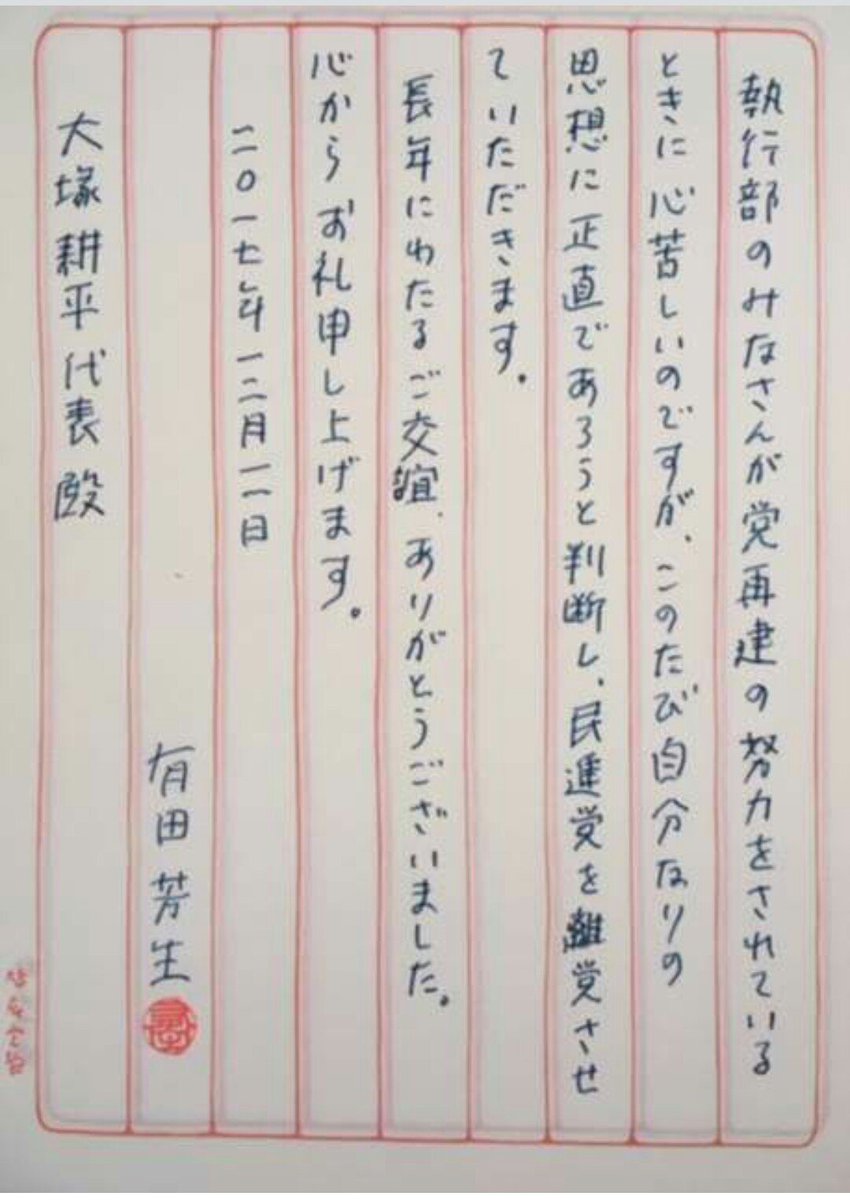 執行部のみなさんが党再建の努力をされている
ときに心苦しいのですが、このたび自分なりの
思想に正直であろうと判断し、民進党を離党させ
ていただきます。
長年にわたるご交誼、ありがとうございました。
心からお礼申し上げます。
二〇一七年一二月一一日
有田芳生
大塚耕平代表殿